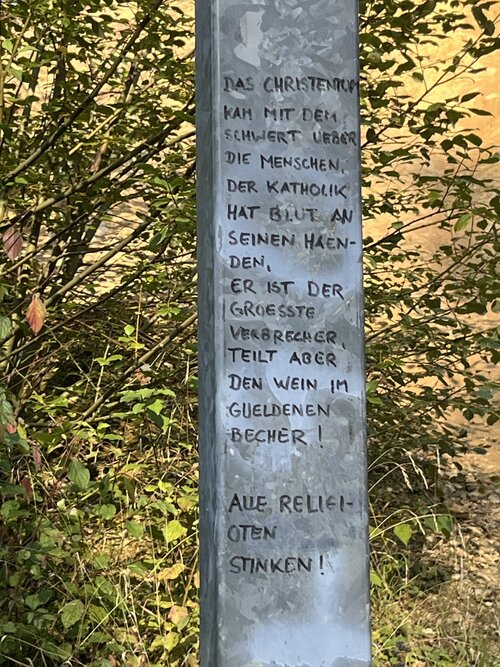 DAS CHRISTENTUM
KAM MIT DEM
SCHWERT UEBER
DIE MENSCHEN.
DER KATHOLIK
HAT BLUT AN
SEINEN HAEN-
DEN,
ER IST DER
GROESSTE
VERBRECHER,
TEILT ABER
DEN WEIN IM
GUELDENEN
BECHER!
ALLE RELIGI-
OTEN
STINKEN!